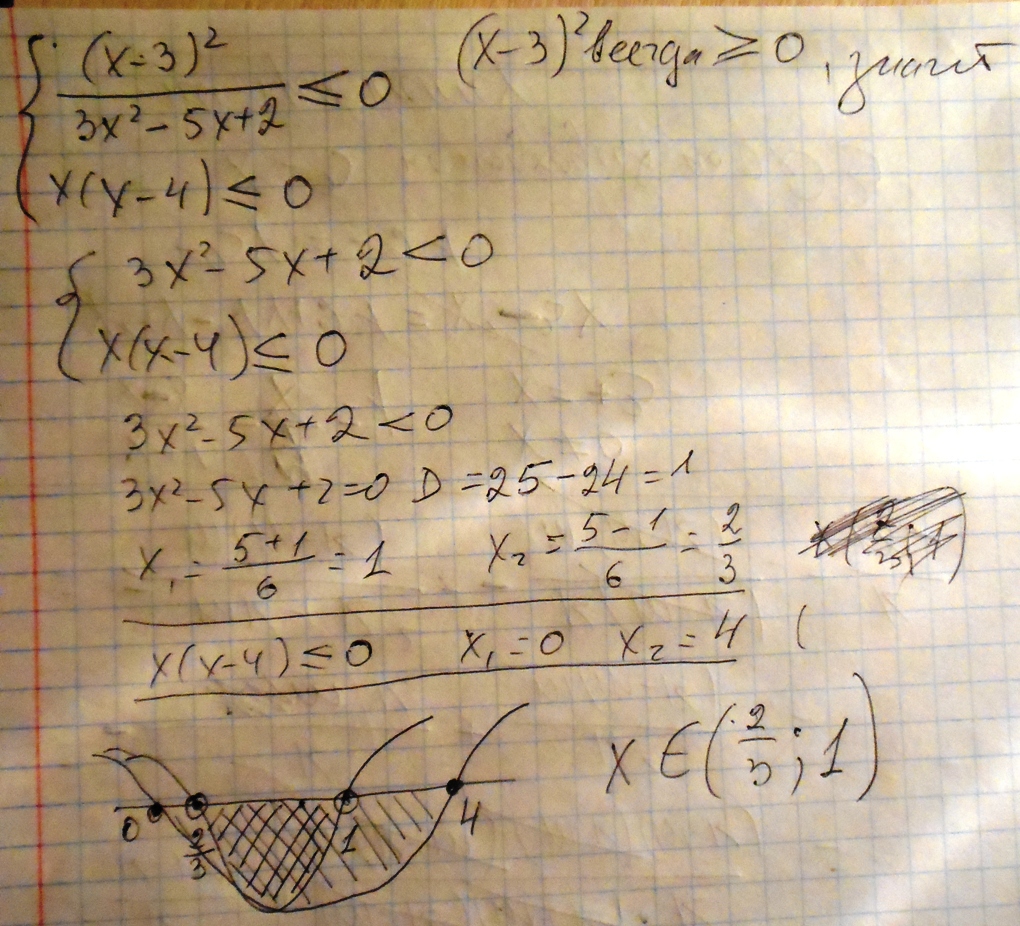 (x-3)² / (3x²-5x+2) ≤ 0   (x-3)² всегда ≥ 0, значит
x(x-4) ≤ 0
3x²-5x+2 < 0
x(x-4) ≤ 0
3x²-5x+2 < 0
3x²-5x+2=0 D =25-24=1
x₁ = (5+1)/6 = 1   x₂ = (5-1)/6 = 2/3
x(x-4) ≤ 0   x₁=0   x₂=4 (
x ∈ (2/3; 1)
0 2/3 1 4